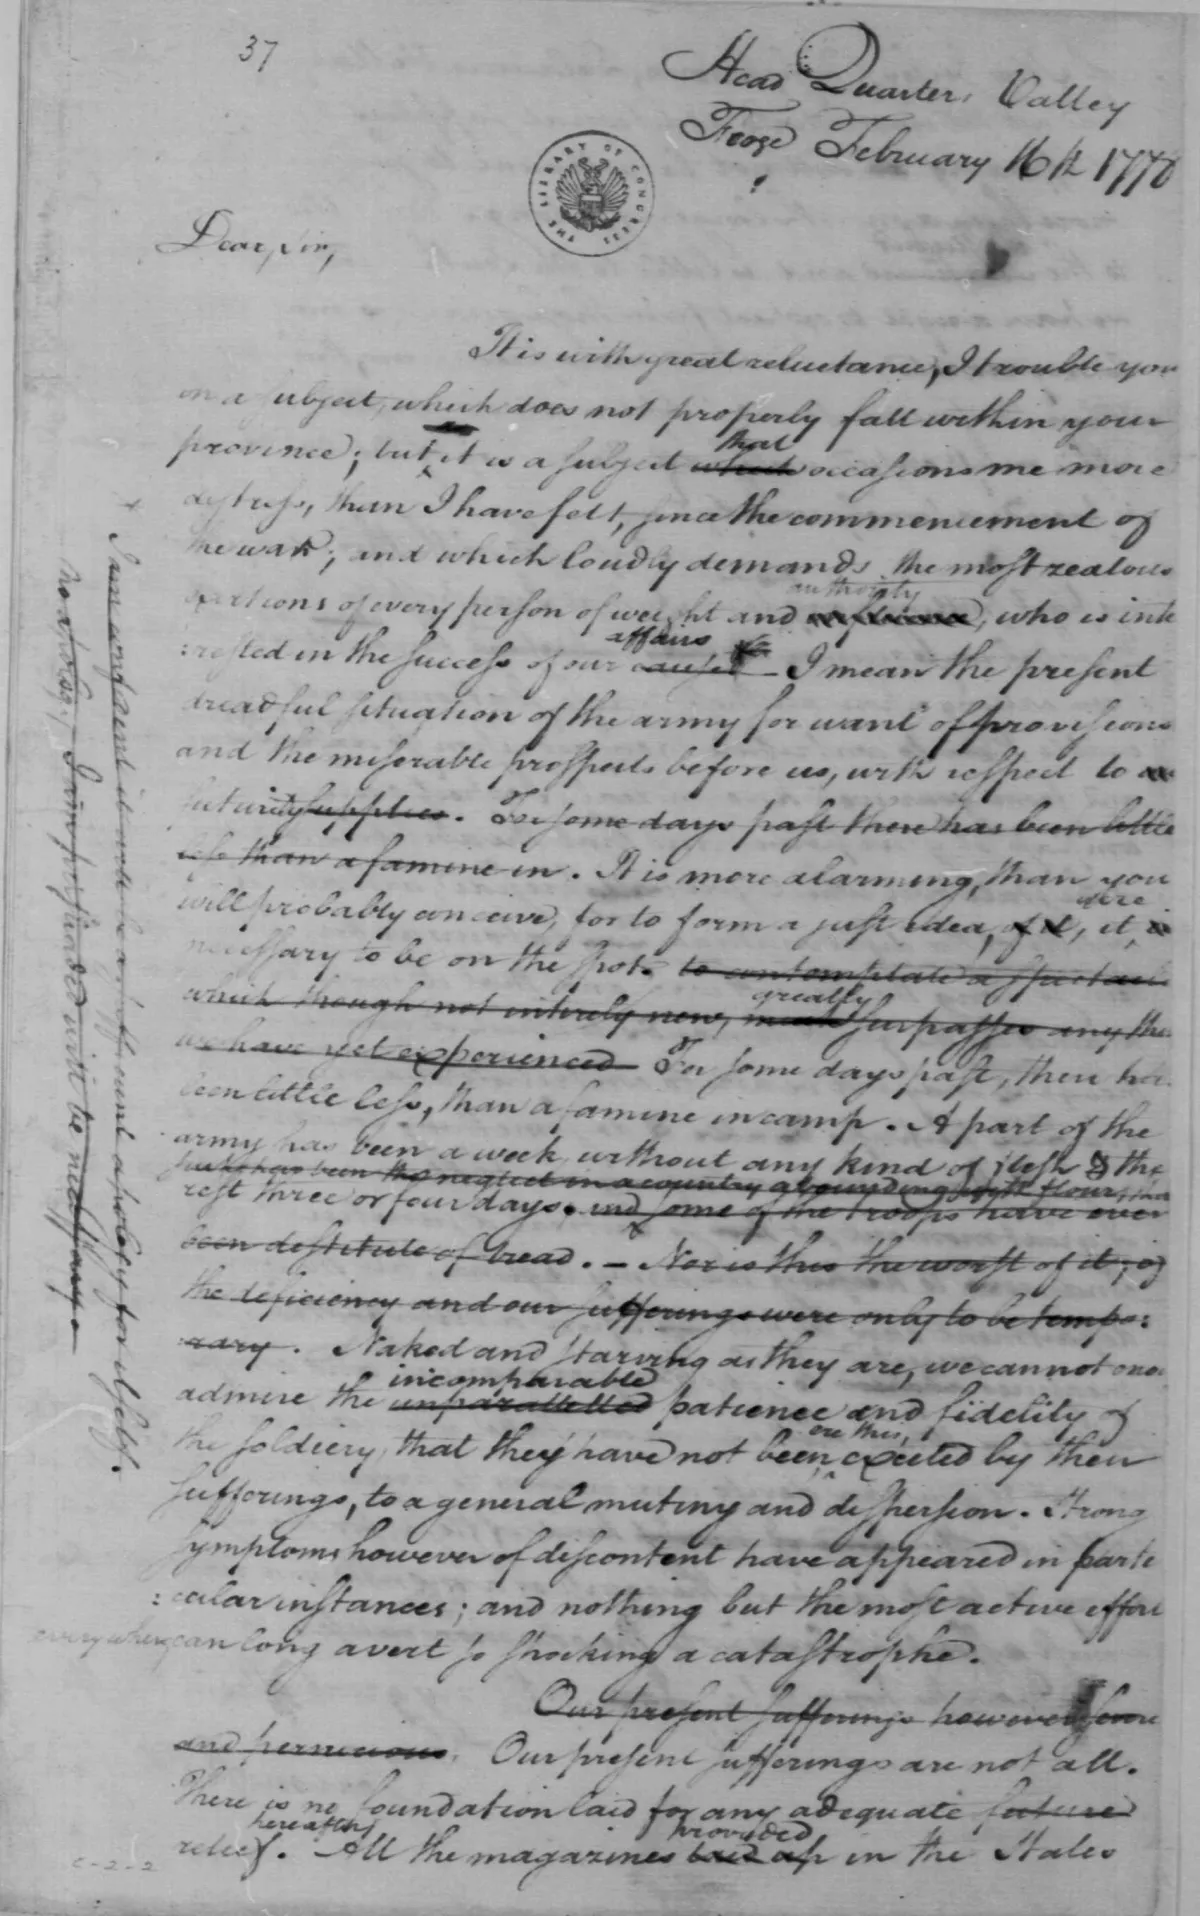 37
Head Quarters Valley
Forge February 16th 1778
THE LIBRARY OF CONGRESS
Dear Sir,
It is with great reluctance, I trouble you
on a subject, which does not properly fall within your
province; but it is a subject which that occasions me more
distress, than I have felt, since the commencement of
the war; and which loudly demands the most zealous
exertions of every person of weight and influence authority, who is inte
:rested in the success of our causes affairs I mean the present
dreadful situation of the army for want of provisions
and the miserable prospects before us, with respect to
futurity supplies. For some days past there has been little
less than a famine in. It is more alarming, than you
will probably conceive, for to form a just idea, of it, it is were
necessary to be on the spot. to contemplate a spectacle
which though not intirely new, much greatly surpasses any thing
we have yet experienced For some days past, there has
been little less, than a famine in camp. A part of the
army has been a week, without any kind of flesh & the
such has been the neglect in a country abounding with flour, that
rest three or four days. and some of the troops have even
been destitute of bread. – Nor is this the worst of it; if
the deficiency and our sufferings were only to be tempo:
rary. Naked and starving as they are, we cannot enou
admire the unparallelled incomparable patience and fidelity of
the soldiery, that they have not been, ere this, excited by their
sufferings, to a general mutiny and dispersion. Strong
symptoms however of discontent have appeared in parti
:cular instances; and nothing but the most active efforts
every where can long avert so shocking a catastrophe.
Our present sufferings however severe
and pernicious. Our present sufferings are not all.
There is no foundation laid for any adequate future
relief hereafter. All the magazines laid up provided in the States
+ I am confident it needs be a sufficient apology for itself.
no apology, I am persuaded will be necessary
C-2-2